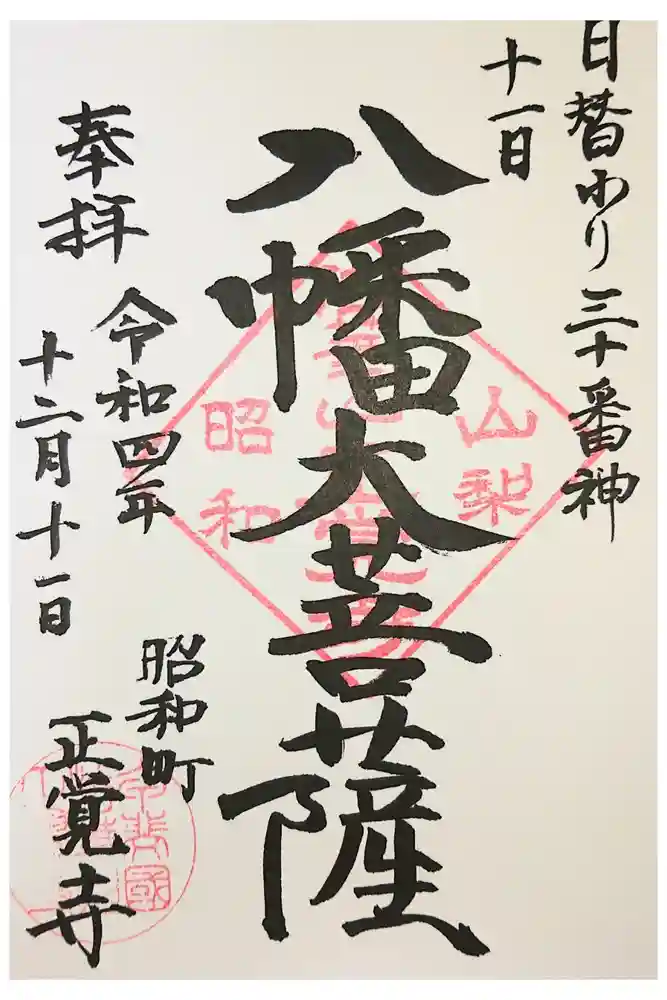 日替わり三十番神
十一日
八幡大菩薩
奉拝
令和四年
十二月十一日
昭和町
正覚寺
山梨
昭和